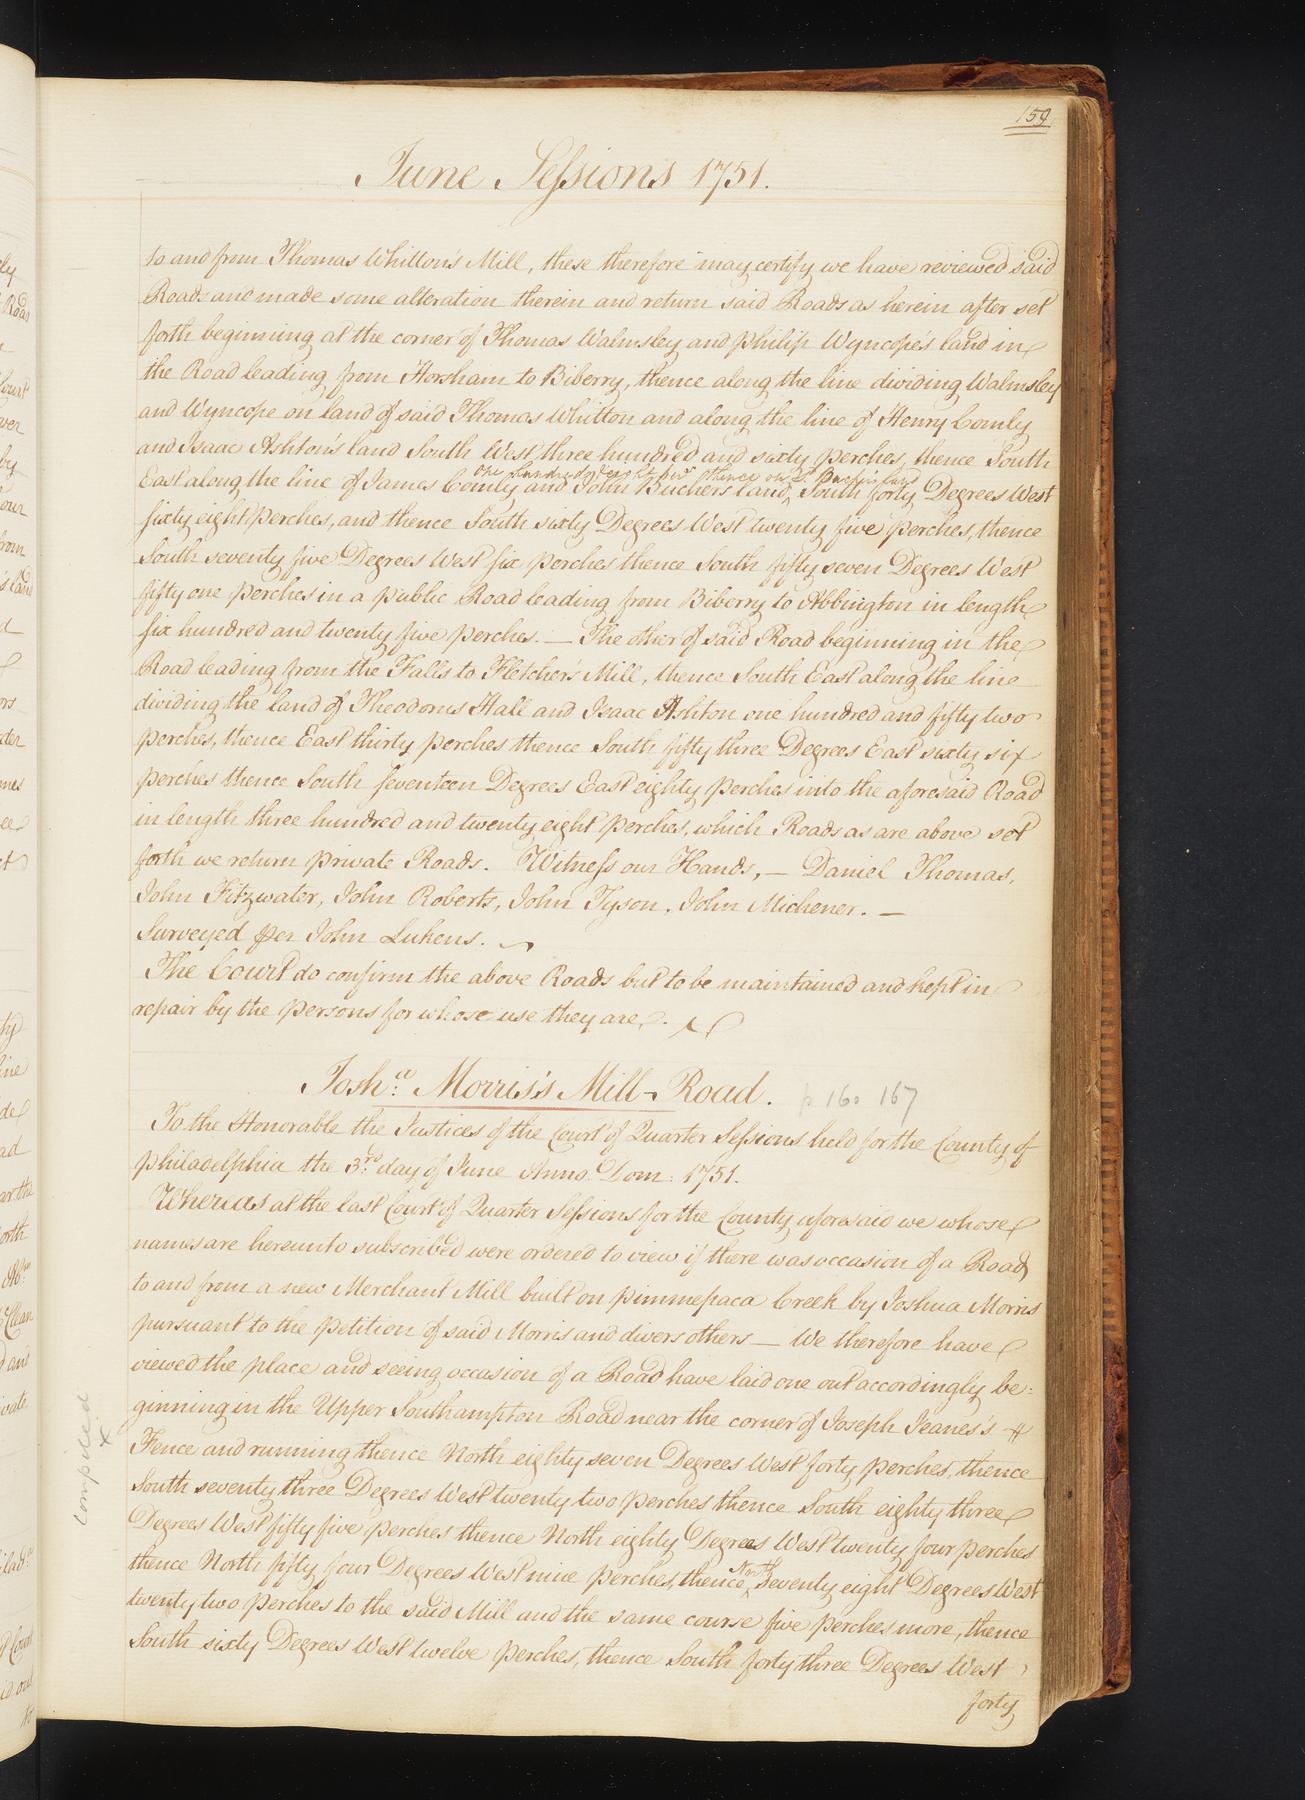 159
June Sessions 1751.
to and from Thomas Whitton's Mill, these therefore may certify we have reviewed said
Roads and made some alteration therein and return said Roads as herein after set
forth beginning at the corner of Thomas Walmsley and Philip Wyncope's land in
the Road leading from Horsham to Biberry, thence along the line dividing Walmsley
and Wyncope on land of said Thomas Whitton and along the line of Henry Comly
and Isaac Ashton's land South West three hundred and sixty perches, thence South
one hundred & eight pers thence on sd. Buchers land
East along the line of James Comly and John Buchers land, South forty Degrees West
sixty eight perches, and thence South sixty Degrees West twenty five perches, thence
South seventy five Degrees West six perches thence South fifty seven Degrees West
fifty one perches in a public Road leading from Biberry to Abbington in length
six hundred and twenty five perches. — The other of said Road beginning in the
Road leading from the Falls to Fletcher's Mill, thence South East along the line
dividing the land of Theodorus Hall and Isaac Ashton one hundred and fifty two
perches, thence East thirty perches thence South fifty three Degrees East sixty six
perches thence South seventeen Degrees East eighty perches into the aforesaid Road
in length three hundred and twenty eight perches, which Roads as are above set
forth we return private Roads. Witness our Hands, — Daniel Thomas,
John Fitzwater, John Roberts, John Tyson, John Michener. —
Surveyed per John Lukens.
The Court do confirm the above Roads but to be maintained and kept in
repair by the persons for whose use they are.
Josh:a Morris's Mill-Road. p 160 167
To the Honorable the Justices of the Court of Quarter Sessions held for the County of
Philadelphia the 3rd day of June Anno Dom: 1751.
Whereas at the last Court of Quarter Sessions for the County aforesaid we whose
names are hereunto subscribed were ordered to view if there was occasion of a Road
to and from a new Merchant Mill built on Pimmepaca Creek by Joshua Morris
pursuant to the petition of said Morris and divers others — We therefore have
viewed the place and seeing occasion of a Road have laid one out accordingly be:
ginning in the Upper Southampton Road near the corner of Joseph Jeanes's #
Fence and running thence North eighty seven Degrees West forty perches, thence
South seventy three Degrees West twenty two perches thence South eighty three
Degrees West fifty five perches thence North eighty Degrees West twenty four perches
thence North fifty four Degrees West nine perches, thence North ‸ Seventy eight Degrees West
twenty two perches to the said Mill and the same course five perches more, thence
South sixty Degrees West twelve perches, thence South forty three Degrees West
forty
compiled x